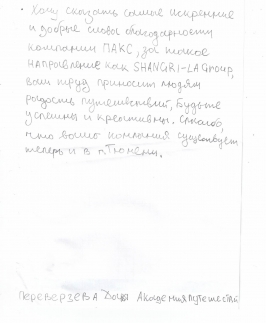 · Хочу сказать самые искренние
и добрые слова благодарности
компании ПАКС, за такое
направление как SHANGRI-LA Group,
ваш труд приносит людям
радость путешествий, Будьте
успешны и креативны. Спасибо,
что ваша компания существует
теперь и в г. Тюмени.
Переверзева Академия Путешествий